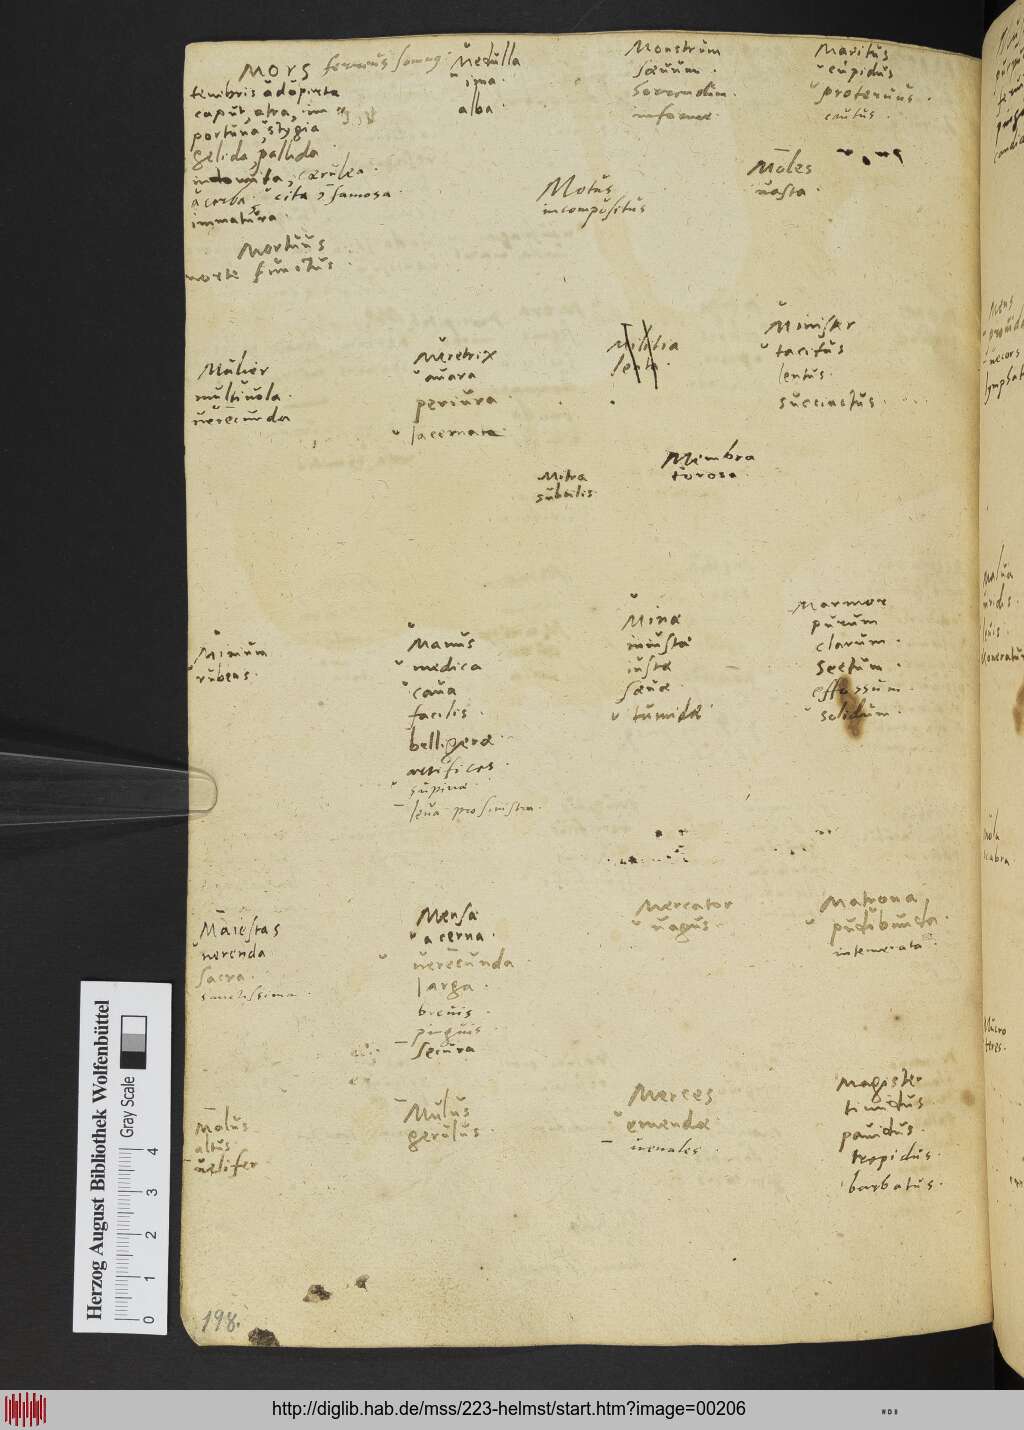 Mors ferreus somnus
tenebris adoperta
caput, atra, im
portuna, stygia
gelida, pallida
indomita, cærulea
acerba. cita, famosa.
immatura.
Mortuus
morte functus.
Medulla
ima.
alba.
Monstrum
sæuum.
horrendum.
informe.
Maritus
cupidus
proteruus.
cautus.
Motus
incompositus
Moles
uasta.
Mulier
multiuola.
uerecunda
Meretrix
auara
periura.
lacernata
Militia
lenta
Minister
tacitus
lentus.
succinctus.
Mitra
subtilis
Membra
torosa.
Minium
rubens.
Manus
medica
caua
facilis.
belligeræ
artifices.
supinæ
leua pro sinistra.
Minæ
iniustæ
iustæ
sæuæ
tumidæ
Marmor
purum
clarum.
Sectum.
effossum.
solidum.
Maiestas
uerenda
sacra.
sanctissima.
Mensa
acerna.
uerecunda.
larga.
breuis.
pinguis
secura
Mercator
uagus.
Matrona
pudibunda.
intemerata.
Malus
altus.
uelifer
Mulus
gerulus.
Merces
emendæ
uenales.
Magister
timidus
pauidus.
trepidus.
barbatus.
198.
Herzog August Bibliothek Wolfenbüttel
Gray Scale
0 1 2 3 4
http://diglib.hab.de/mss/223-helmst/start.htm?image=00206